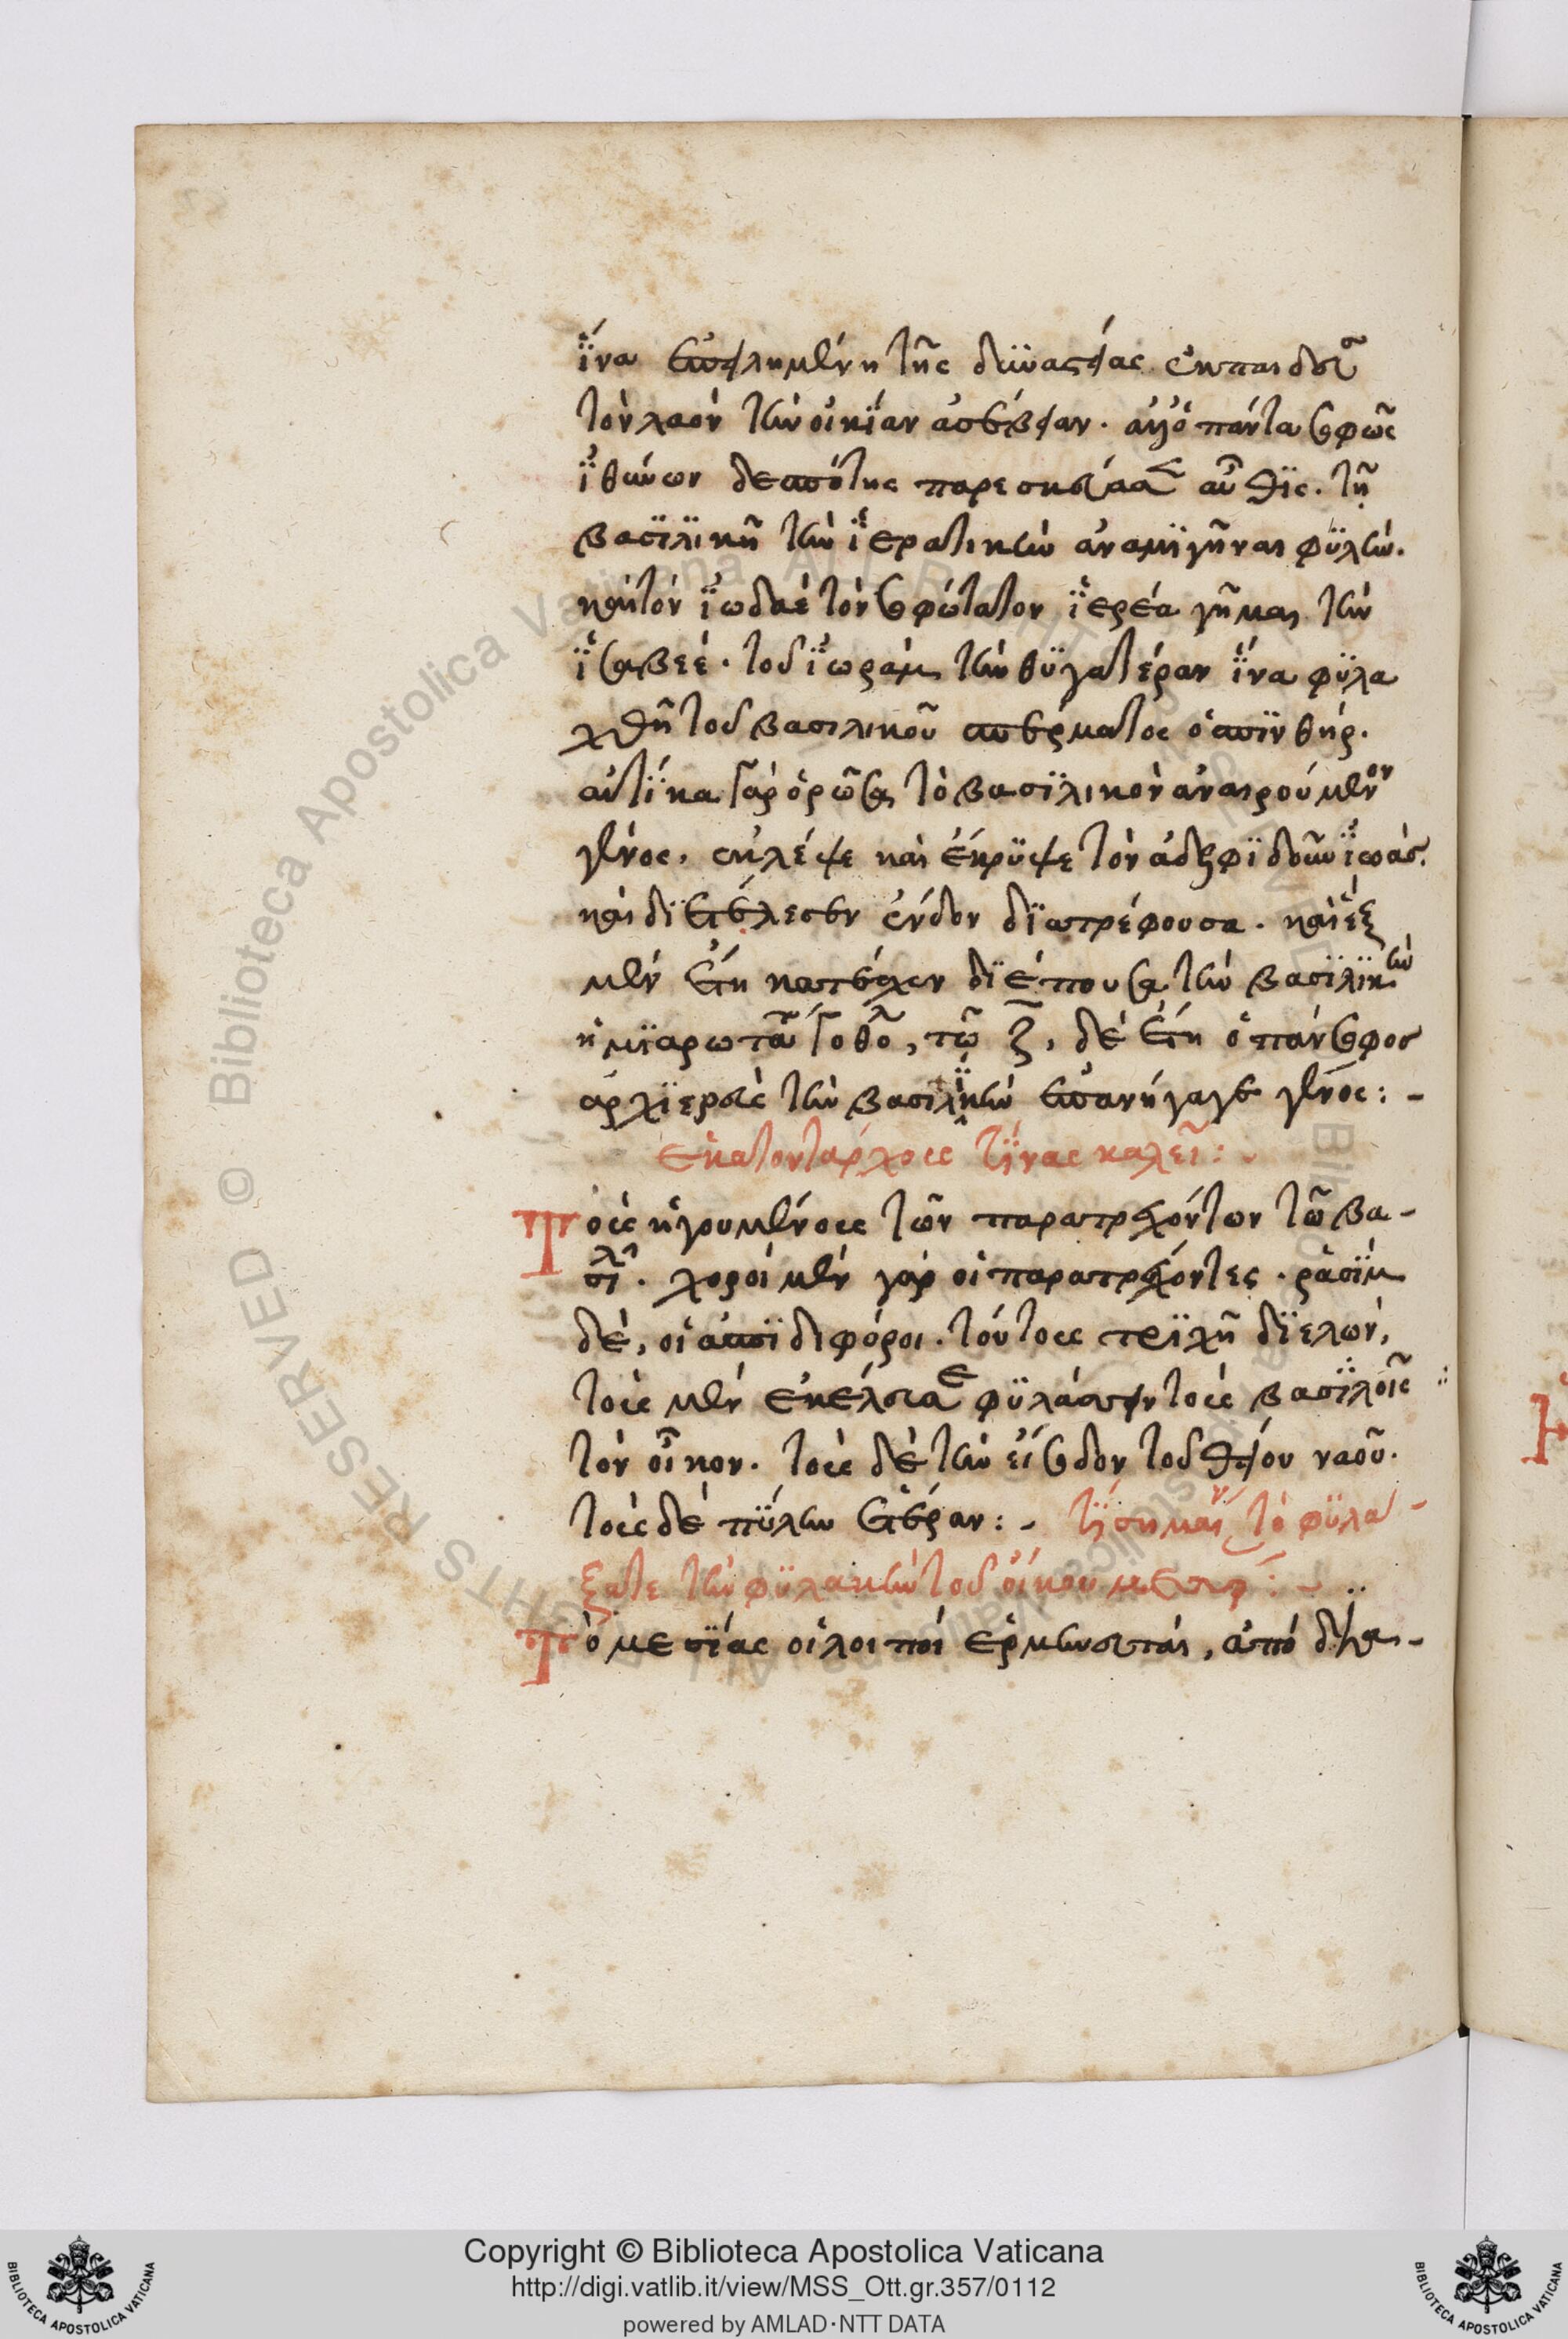 ἵνα ἐπειλημμένη τῆς δυναστείας ἐκπαιδεύσῃ
τὸν λαὸν τὴν οἰκίαν ἀσέβειαν. ἀλλ' ὁ πάντα σοφῶς
ἰθύνων δεσπότης παρεσκεύασεν αὖθις. τῇ
βασιλικῇ τὴν ἱερατικὴν ἀναμιγῆναι φυλήν.
καὶ τὸν ἰωδαὲ τὸν σοφώτατον ἱερέα γῆμαι τὴν
ἰσαβεέ. τοῦ ἰωρὰμ τὴν θυγατέραν ἵνα φυλα
χθῇ τοῦ βασιλικοῦ σπέρματος ὁ σπινθήρ.
αὐτίκα γὰρ ὁρῶσα τὸ βασιλικὸν ἀναιρούμενον
γένος, ἔκλεψε καὶ ἔκρυψε τὸν ἀδελφιδοῦν ἰωάς.
καὶ διετέλεσεν ἔνδον διατρέφουσα. καὶ ἓξ
μὲν ἔτη κατέσχεν διέπουσα τὴν βασιλικὴν
ἡ μιαρωτάτη γοθολία, τῷ ζ, δὲ ἔτη ὁ πάνσοφος
ἀρχιερεὺς τὴν βασιλικὴν ἐπανήγαγε γένος: -
ἑκατοντάρχους τίνας καλεῖ: -
Τοὺς ἡγουμένους τῶν παρατρεχόντων τῷ βα-
σιλεῖ. χοροὶ μὲν γὰρ οἱ παρατρέχοντες. ῥασὶμ
δὲ, οἱ ἀσπιδιφόροι. τούτους τριχῇ διελὼν,
τοὺς μὲν ἐκέλευσε φυλάττειν τοὺς βασιλείοις
τὸν οἶκον. τοὺς δὲ τὴν εἴσοδον τοῦ θείου ναοῦ.
τοὺς δὲ πύλην ἑτέραν: - τί σημαίνει τὸ φυλά-
ξατε τὴν φυλακὴν τοῦ οἴκου μεσσαέ: -
Τὸ μεσίας οἱ λοιποὶ ἑρμηνευταὶ, ἀπὸ
Copyright © Biblioteca Apostolica Vaticana
http://digi.vatlib.it/view/MSS_Ott.gr.357/0112
powered by AMLAD·NTT DATA